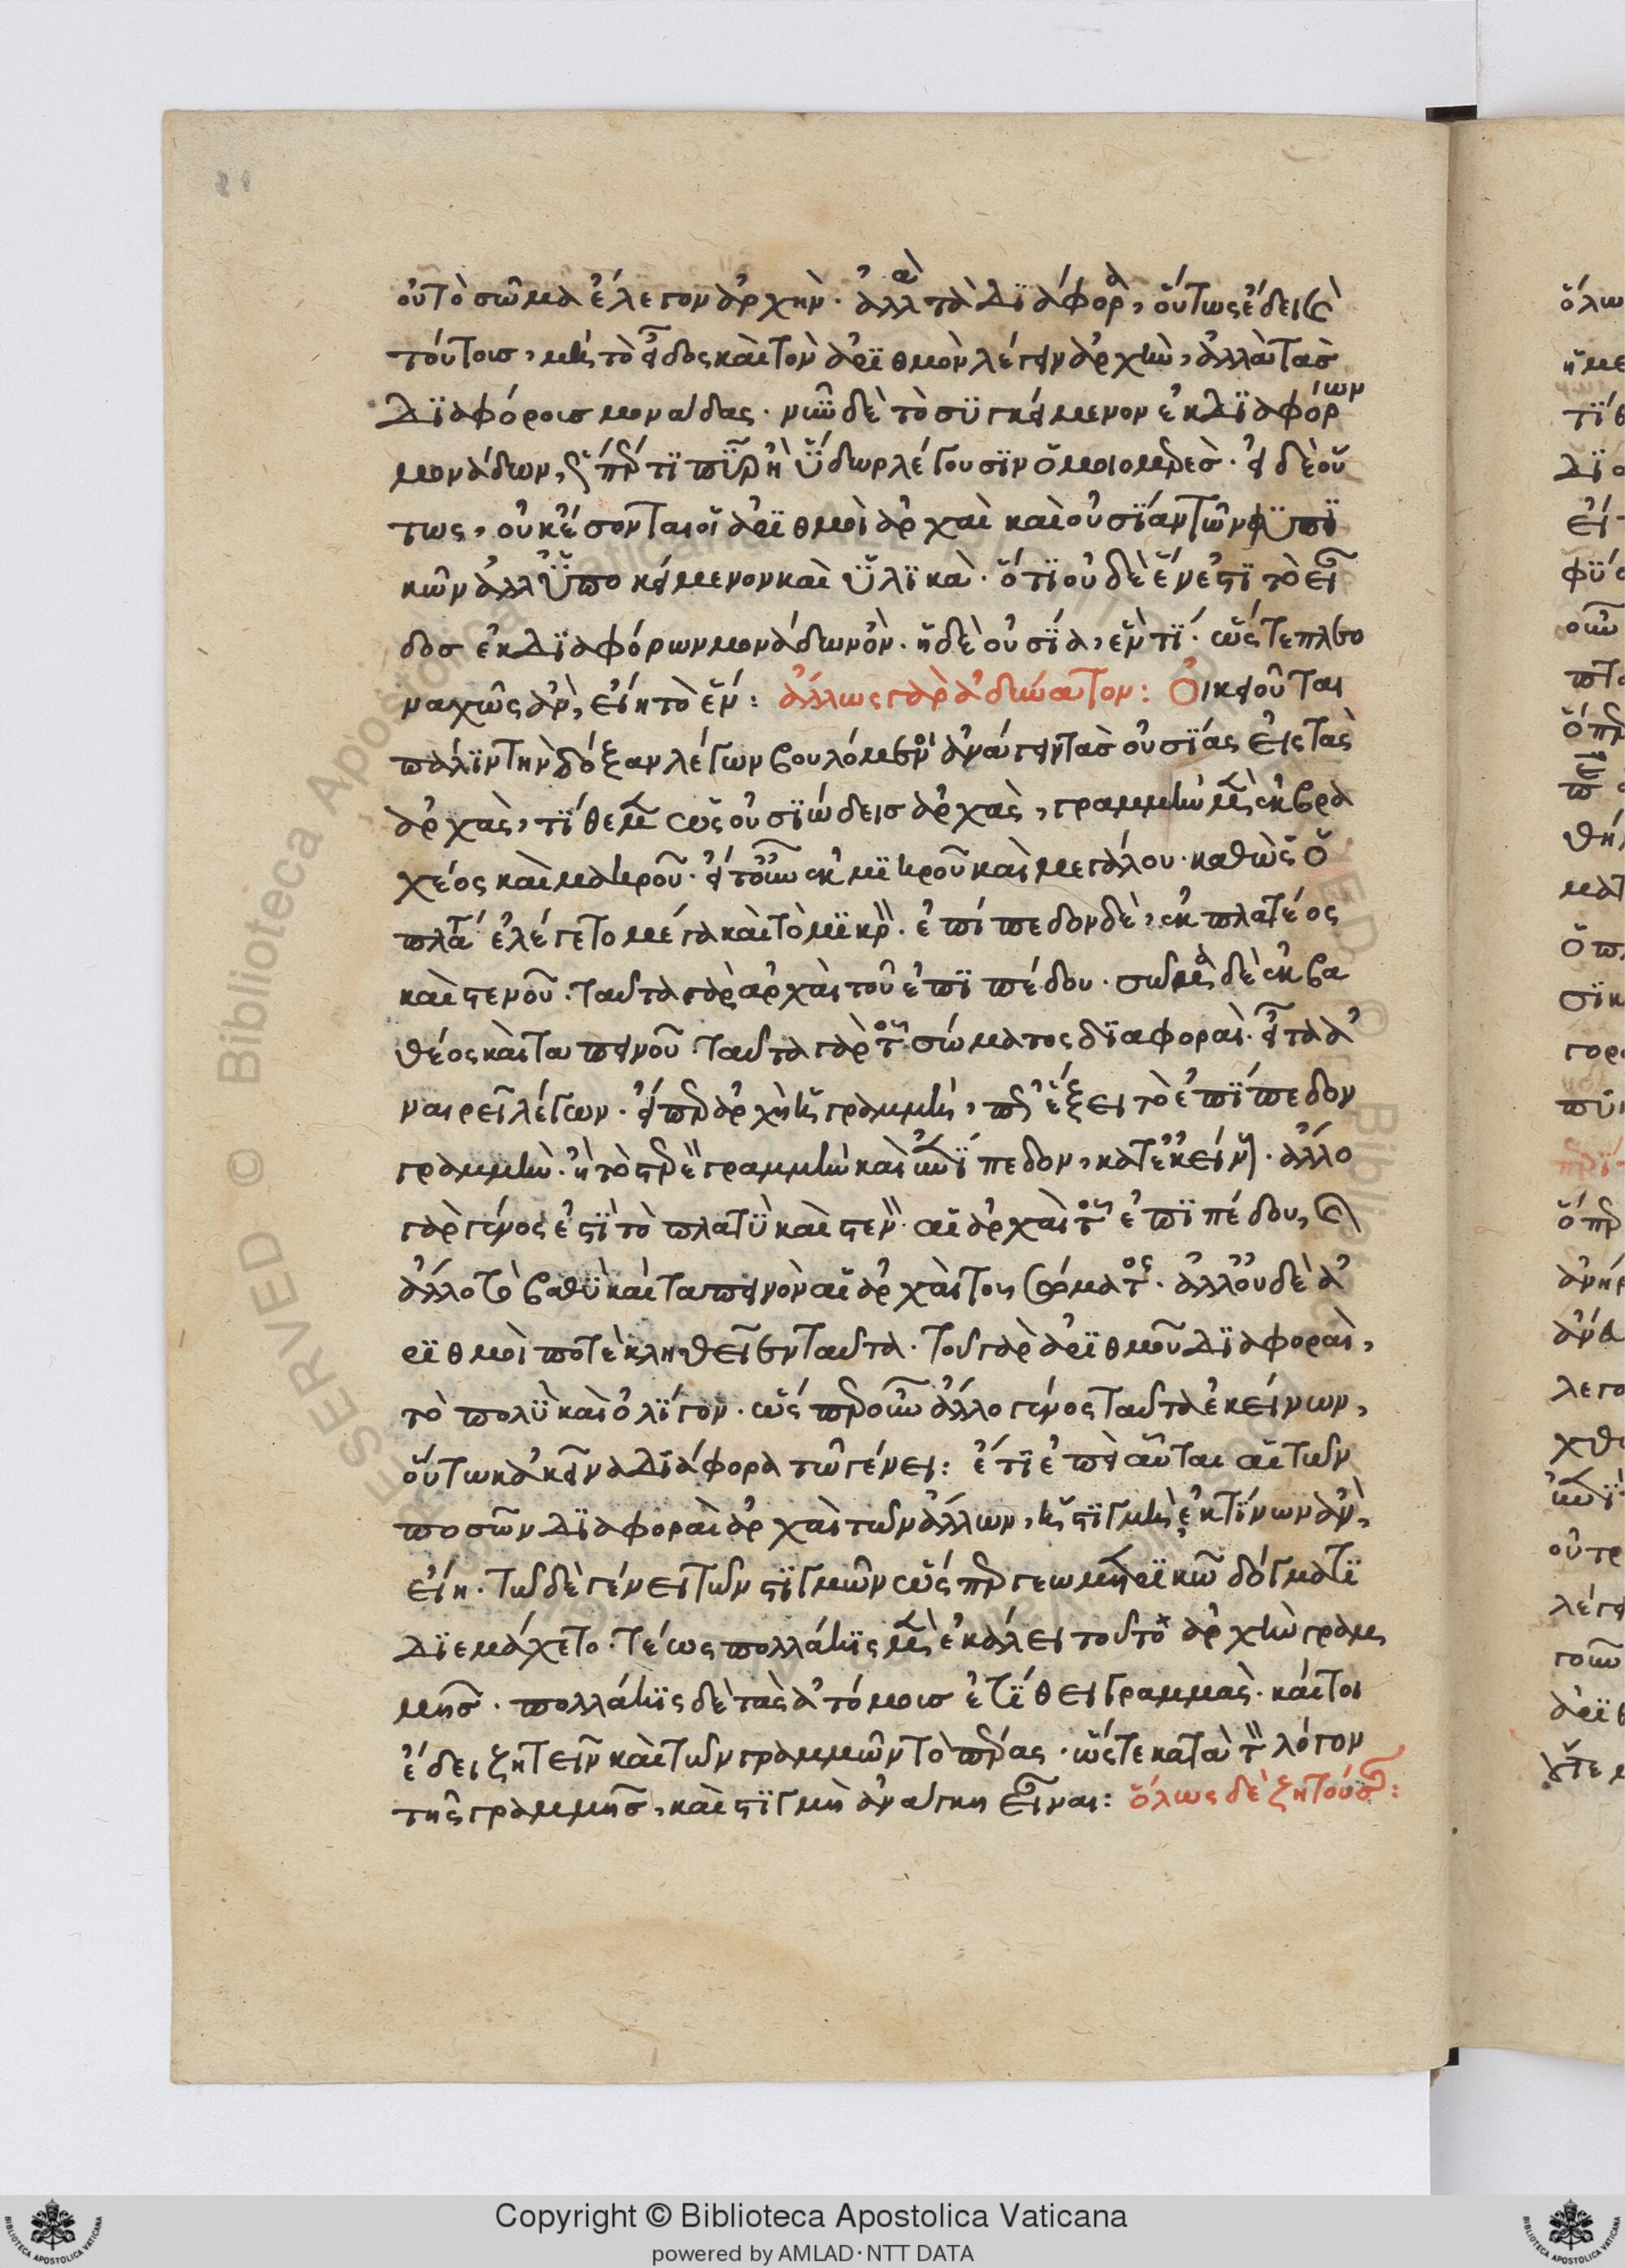 οὐ τὸ σῶμα ἔλεγον ἀρχὴν· ἀλλὰ τὰ διάφορα, οὕτως ἔδει καὶ
τούτοις, μὴ τὸ εἶδος καὶ τὸν ἀριθμὸν λέγειν ἀρχὴν, ἀλλὰ τὰς
διαφόροις μονάδας· νῦν δὲ τὸ συγκείμενον ἐκ διαφόρων
μονάδων, ὥσπερ τι πῦρ ἢ ὕδωρ λέγουσιν ὁμοιομερὲς· εἰ δὲ οὕ
τως, οὐκ ἔσονται οἱ ἀριθμοὶ ἀρχαὶ καὶ οὐσίαι τῶν
κῶν ἀλλ' ὑποκείμενον καὶ ὑλικὰ· ὅτι οὐδὲ ἕν ἐστι τὸ εἶ
δος ἐκ διαφόρων μονάδων ὂν· ἡ δὲ οὐσία, ἕν τι· ὥστε πλεο
ναχῶς ἂν, εἴη τὸ ἕν: ἄλλως γὰρ ἀδύνατον: Οἰκειοῦται
πάλιν τὴν δόξαν λέγων βουλόμενοι ἀνάγειν τὰς οὐσίας εἰς τὰς
ἀρχὰς, τίθεμεν ὡς οὐσιώδεις ἀρχὰς, γραμμὴν μὲν ἐκ βρα
χέος καὶ μακροῦ· εἴτουν ἐκ μικροῦ καὶ μεγάλου· καθὼς ὁ
πλάτων ἐλέγετο μέγα καὶ τὸ μικρὸν· ἐπίπεδον δὲ, ἐκ πλατέος
καὶ στενοῦ· ταῦτα γὰρ ἀρχαὶ τοῦ ἐπιπέδου· σῶμα δὲ ἐκ βα
θέος καὶ ταπεινοῦ· ταῦτα γὰρ τοῦ σώματος διαφοραὶ· εἶτα ἀ
ναιρεῖ λέγων· εἴπερ ἀρχὴ γραμμῆς, πῶς ἕξει τὸ ἐπίπεδον
γραμμὴν· ἢ τὸ στερεὸν γραμμὴν καὶ ἐπίπεδον, κατ' ἐκείνους· ἄλλο
γὰρ γένος ἐστὶ τὸ πλατὺ καὶ στενὸν· αἱ ἀρχαὶ τοῦ ἐπιπέδου, καὶ
ἄλλο τὸ βαθὺ καὶ ταπεινὸν αἱ ἀρχαὶ τοῦ σώματος· ἀλλ' οὐδὲ ἀ
ριθμοί ποτε κληθεῖεν ταῦτα· τοῦ γὰρ ἀριθμοῦ διαφοραὶ,
τὸ πολὺ καὶ ὀλίγον· ὥσπερ οὖν ἄλλο γένος ταῦτα ἐκείνων,
οὕτω κἀκεῖνα διάφορα τῷ γένει: ἔτι ἐπεὶ αὗται αἱ τῶν
ποσῶν διαφοραὶ ἀρχαὶ τῶν ἄλλων, ἡ στιγμὴ ἐκ τίνων ἂν,
εἴη· τῷ δὲ γένει τῶν στιγμῶν ὥσπερ γεωμετρικῷ δόγματι
διεμάχετο· τέως πολλάκις μὲν ἐκάλει τοῦτο ἀρχὴν γραμ
μῆς· πολλάκις δὲ τὰς ἀτόμοις ἐτίθει γραμμὰς· καίτοι
ἔδει ζητεῖν καὶ τῶν γραμμῶν τὸ πέρας· ὥστε κατὰ τὸν λόγον
τῆς γραμμῆς, καὶ στιγμὴ ἀνάγκη εἶναι: ὅλως δὲ ζητούσης:
Copyright © Biblioteca Apostolica Vaticana
powered by AMLAD·NTT DATA